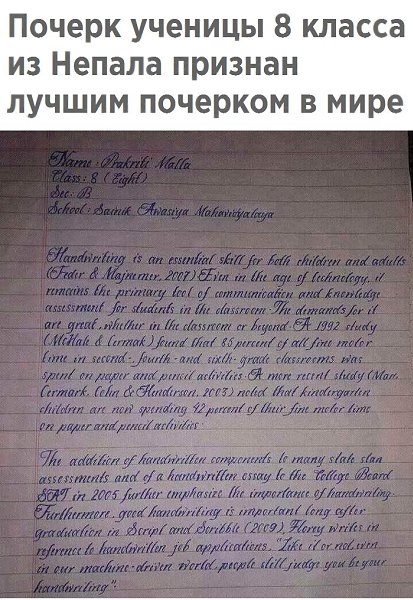 Почерк ученицы 8 класса
из Непала признан
лучшим почерком в мире
Name : Prakriti Malla
Class : 8 (Eight)
Sec : B
School : Sainik Awasiya Mahavidyalaya
Handwriting is an essential skill for both children and adults
(Feder & Majnemer, 2007) Even in the age of technology, it
remains the primary tool of communication and knowledge
assessment for students in the classroom The demands for it
are great, whether in the classroom or beyond. A 1992 study
(McHale & Cermak) found that 85 percent of all fine motor
time in second-, fourth- and sixth- grade classrooms was
spent on paper and pencil activities. A more recent study (Marr,
Cermark, Cohn & Henderson, 2003) noted that kindergarten
children are now spending 42 percent of their fine motor time
on paper and pencil activities.
The addition of handwritten components to many state stan
assessments and of a handwritten essay to the College Board
SAT in 2005 further emphasize the importance of handwriting.
Furthermore, good handwriting is important long after
graduation in Script and Scribble (2009), Florey writes in
reference to handwritten job applications, "Like it or not, even
in our machine-driven world, people still judge you be your
handwriting".